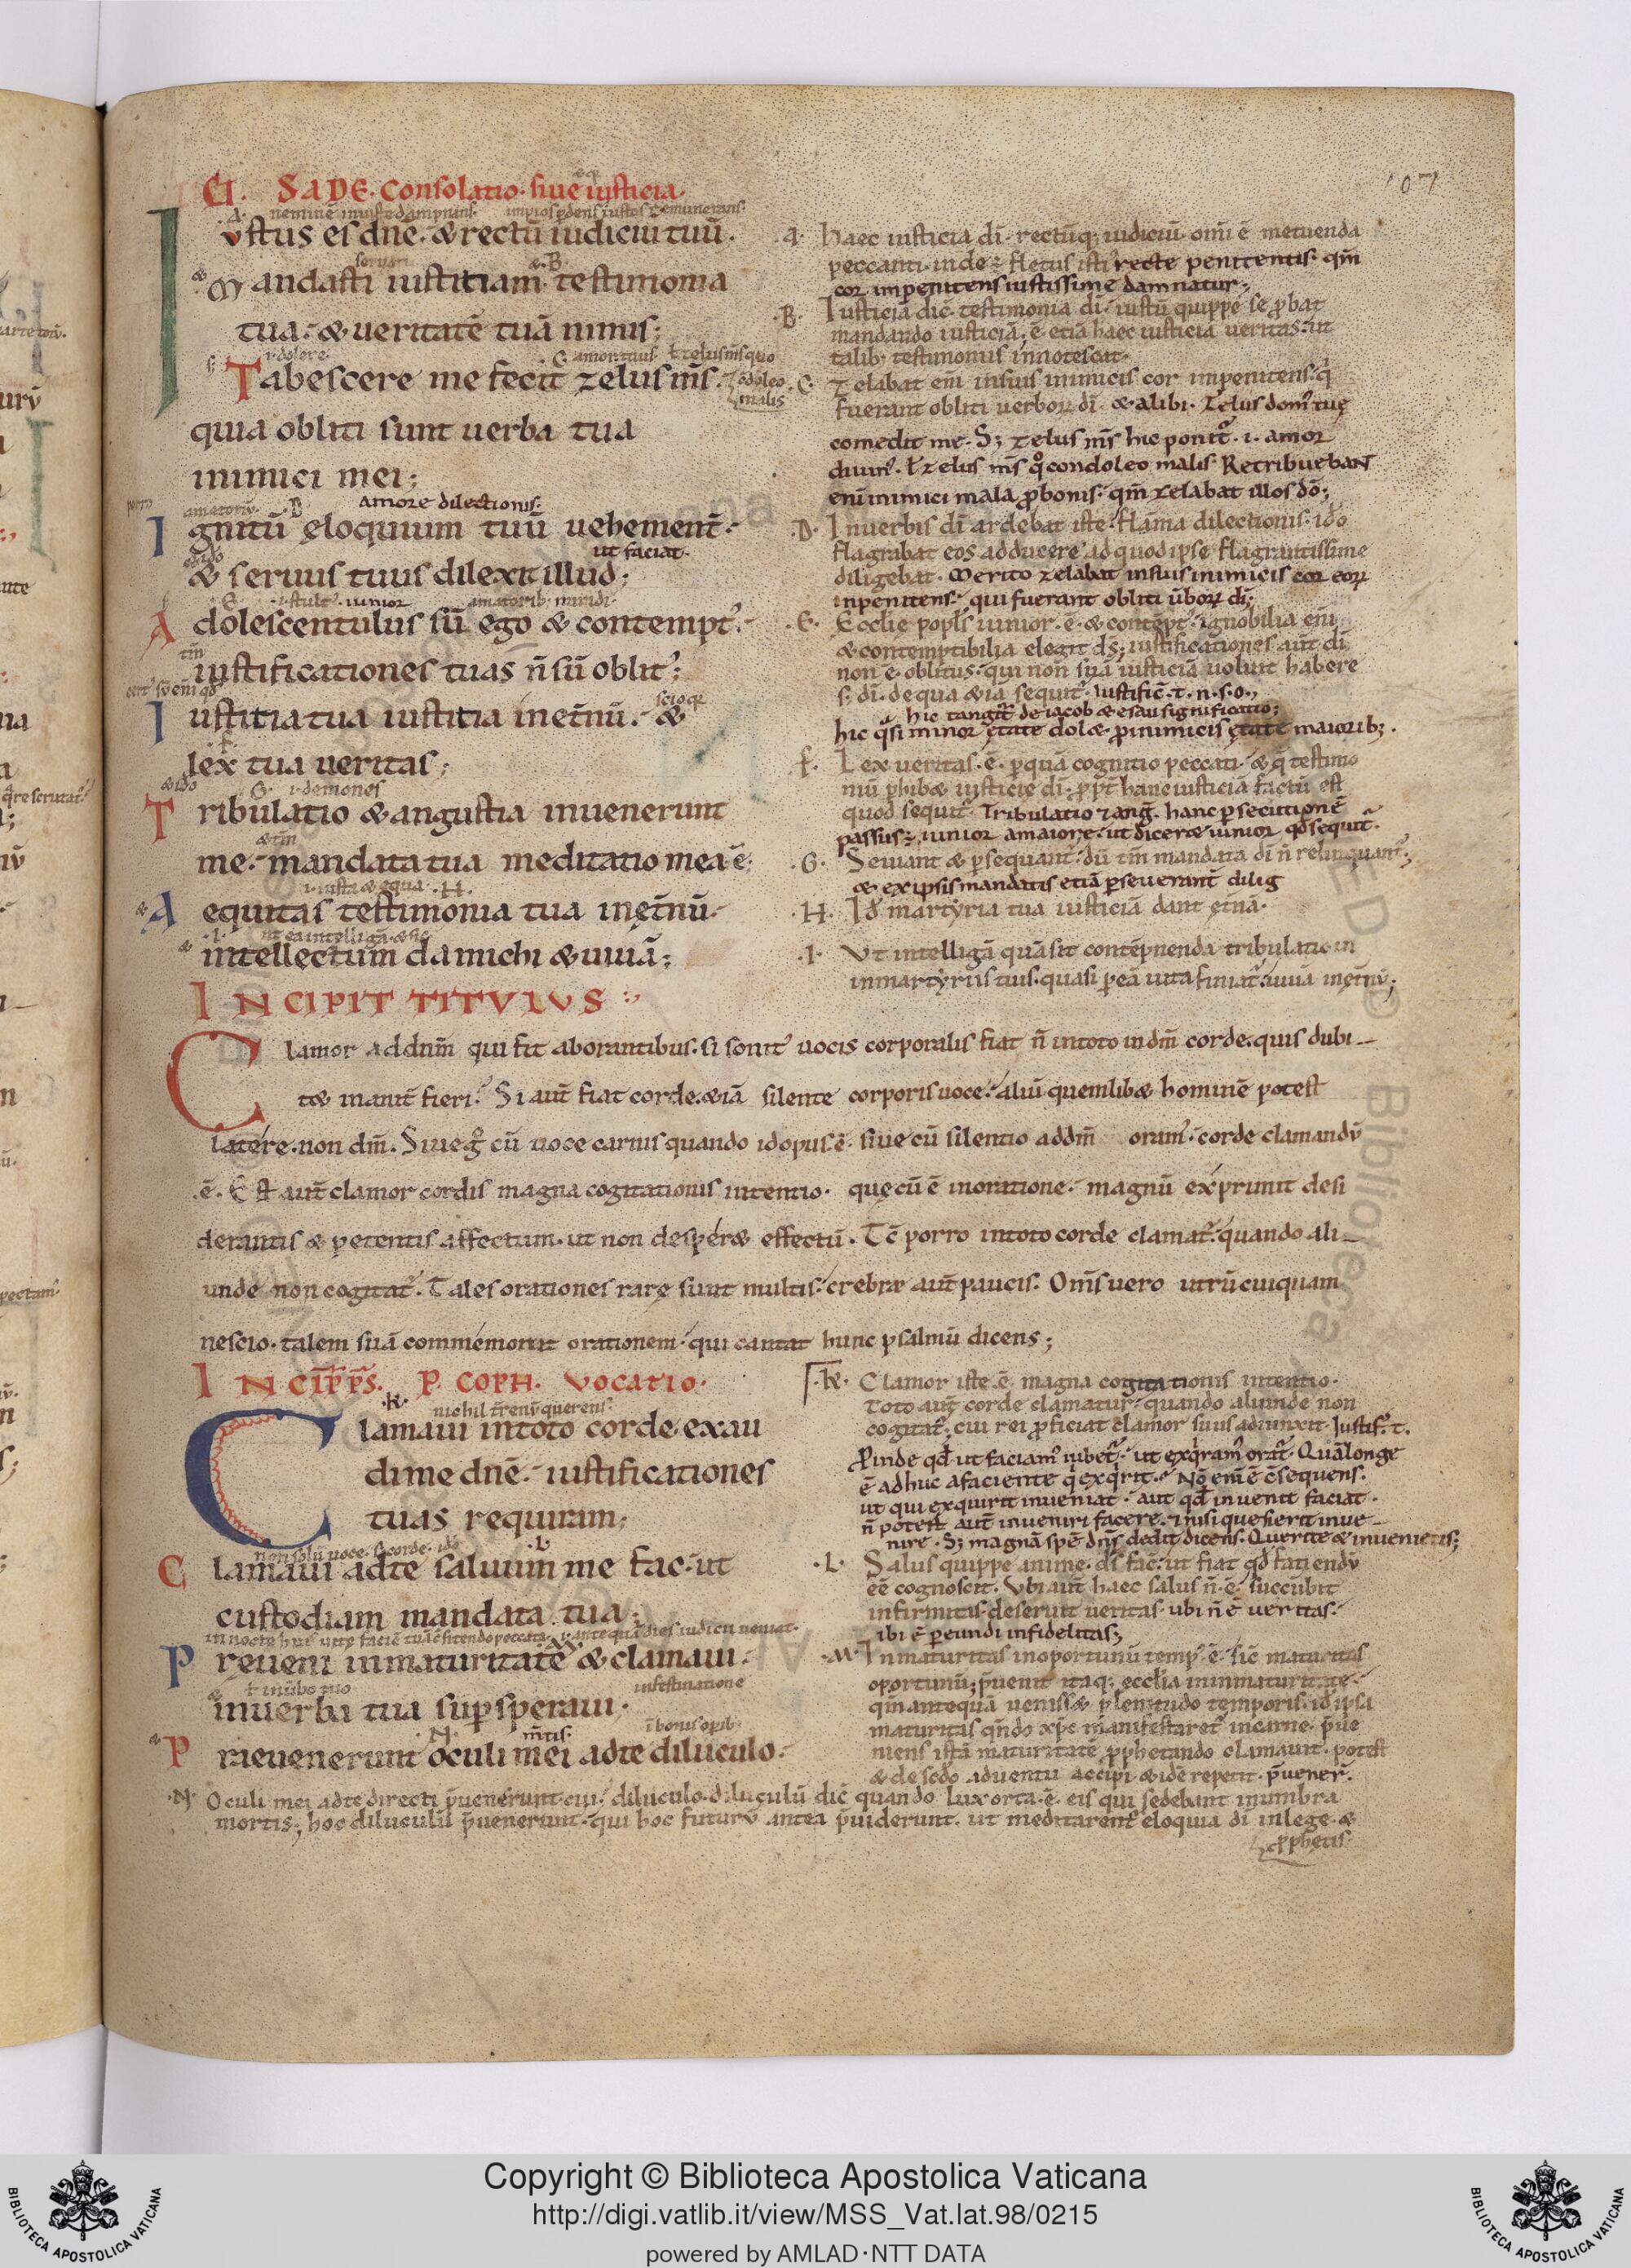 CI. SADE. Consolatio. siue iusticia.
·A· neminē iniuste dampnans. impios pdens iustos remunerans.
Iustus es dn̄e. & rectū iudiciū tuū.
Mandasti iustitiam testimonia
tua. & ueritatē tuā nimis;
.i. dolere
Tabescere me fecit zelus m̄s.
quia obliti sunt uerba tua
inimici mei;
amore dilectionis.
Ignitū ęloquium tuū uehement̄.
ut faciat.
& seruus tuus dilexit illud;
Adolescentulus sū ego & contempt'.
iustificationes tuas n̄ sū oblit';
Iustitia tua iustitia inęt̄nū. &
lex tua ueritas;
.i. demones
Tribulatio & angustia inuenerunt
me. mandata tua meditatio mea ē;
.i. iusta & equa .H.
Aequitas testimonia tua inęt̄nū.
intellectum da michi & uiuā;
·A· haec iusticia dī. rectūq; iudiciū. omī ē metuenda
peccanti. inde ÷ fletus isti recte penitentis. qm̄
cor inpenitens iustissime damnatur;
·B· Iusticiā dic̄ testimonia dī. iustū quippe se pbat
mandando iusticiā; ē etiā haec iusticia ueritas. ut
talib; testimoniis innotescat.
·C· Zelabat em̄ in suis inimicis cor inpenitens. q
fuerant obliti uerboꝝ dī. & alibi. Zelus dom' tuę
comedit me. S; zelus m̄s hic ponit'. .i. amor
diuin'. ł zelus m̄s q° condoleo malis. Retribuebant
eni inimici mala pbonis. qm̄ zelabat illos dō;
·D· In uerbis dī ardebat iste flāma dilectionis. idō
flagrabat eos adducere ad quod ipse flagrantissime
diligebat. Merito zelabat in suis inimicis cor eoꝝ
inpenitens. qui fuerant obliti ūboꝝ dī;
·E· Ecclie popl's iunior. ē. & contēpt'. ignobilia em̄
& contemptibilia elegit ds̄; iustificationes aut̄ dī
non ē oblitus. qui non suā iusticiā uoluit habere
s; dī. de qua & iā sequit'. Iustific̄. t. n. s. o.,
hic tangit' de iacob & esau significatio;
hic q̄si minor ętate dol& pinimicis ętate maiorib;.
·F· Lex ueritas. ē. p quā cognitio peccati. & q̄ testimo
niū phib& iusticie dī. ppt̄ hanc iusticiā factū est
quod sequit'. Tribulatio & anḡ. hanc psecutionē
passus ÷ iunior a maiore. ut dicer& iunior qd̄ sequit'.
·G· Seuiant & psequant'. dū tm̄ mandata dī n̄ relinquant';
& ex ipsis mandatis etiā pseuerant̄ dilig
·H· Id' martyria tua iusticiā dant ęt̄nā.
·I· Vt intelligā quā sit contēpnenda tribulatio in
in martyriis tuis. quasi p eā uita finiat'. uiuā inęt̄nū;
INCIPIT TITVLVS
Clamor ad dn̄m qui fit aborantibus. si sonit' uocis corporalis fiat n̄ intoto in dm̄ corde. quis dubi-
t& inanit̄ fieri? Si aut̄ fiat corde. & iā silente corporis uoce. aliū quemlib& hominē potest
latere. non dm̄. Siue g° cū uoce carnis quando id opus. ē. siue cū silentio ad dm̄ oram'. corde clamandū
.ē. Est aut̄ clamor cordis magna cogitationis intentio. quę cū ē in oratione. magnū exprimit desi
derantis & petentis affectum. ut non desper& effectū. Tc̄ porro intoto corde clamat'. quando ali-
unde non cogitat'. Tales orationes rarę sunt multis. crebrae aut̄ paucis. Om̄s uero utrū cuiquam
nescio. talem suā commemorat orationem qui cantat hunc psalmū dicens;
INCIP̄ P̄S. P. COPH. VOCATIO.
nichil t̄renū querens.
Clamaui in toto corde. exau
di me dn̄ē. iustificationes
tuas requiram;
non solū uoce. s; corde. idō
Clamaui ad te saluum me fac. ut
custodiam mandata tua;
Preueni in maturitatē & clamaui.
in uerba tua sup speraui.
m̄tis. ī bonis opib;
Praeuenerunt oculi mei ad te diluculo.
·K· Clamor iste. ē. magna cogitationis intentio.
Toto aut̄ corde clamatur. quando aliunde non
cogitat'; cui rei pficiat clamor suus adiunxit. Iustif. t.
Pinde qd̄ ut faciam' iubet'. ut exq̄ram' orat'. Quā longe
ē adhuc a faciente q̄ exq̄rit. Nō em̄ ē c̄sequens.
ut qui exquirit inueniat. aut qd̄ inuenit faciat.
n̄ potest aut̄ inueniri facere. nisi quesierit inue-
nire. S; magnā spē dn̄s dedit dicens. Querite & inuenietis;
·L· Salus quippe anime. ds̄ fac̄. ut fiat qd̄ faciendū
eē cognoscit. Vbi aut̄ haec salus n̄. ē. succūbit
infirmitas. deseruit ueritas. ubi n̄ ē ueritas.
ibi ē peundi infidelitas;
·M· Inmaturitas inoportunū temp'. ē. sic̄ maturitas
oportunū; p̄uenit itaq; ecclīa in inmaturitate.
qm̄ antequā ueniss& plenitudo temporis. id ipsa
maturitas qn̄do xp̄c manifestaret' in carne. p̄ue
niens istā maturitatē pphetando clamauit. potest
& de scdo aduentu accipi. & idē repetit. p̄uener̄.
·N· Oculi mei ad te directi p̄uenerunt. cui? diluculo. Diluculū dic̄ quando lux orta. ē. eis qui sedebant in umbra
mortis; hoc diluculū p̄uenerunt. qui hoc futurū antea p̄uiderunt. ut meditarent' eloquia dī in lege. &
pphetis.
Copyright © Biblioteca Apostolica Vaticana
http://digi.vatlib.it/view/MSS_Vat.lat.98/0215
powered by AMLAD·NTT DATA
BIBLIOTECA APOSTOLICA VATICANA
BIBLIOTECA APOSTOLICA VATICANA